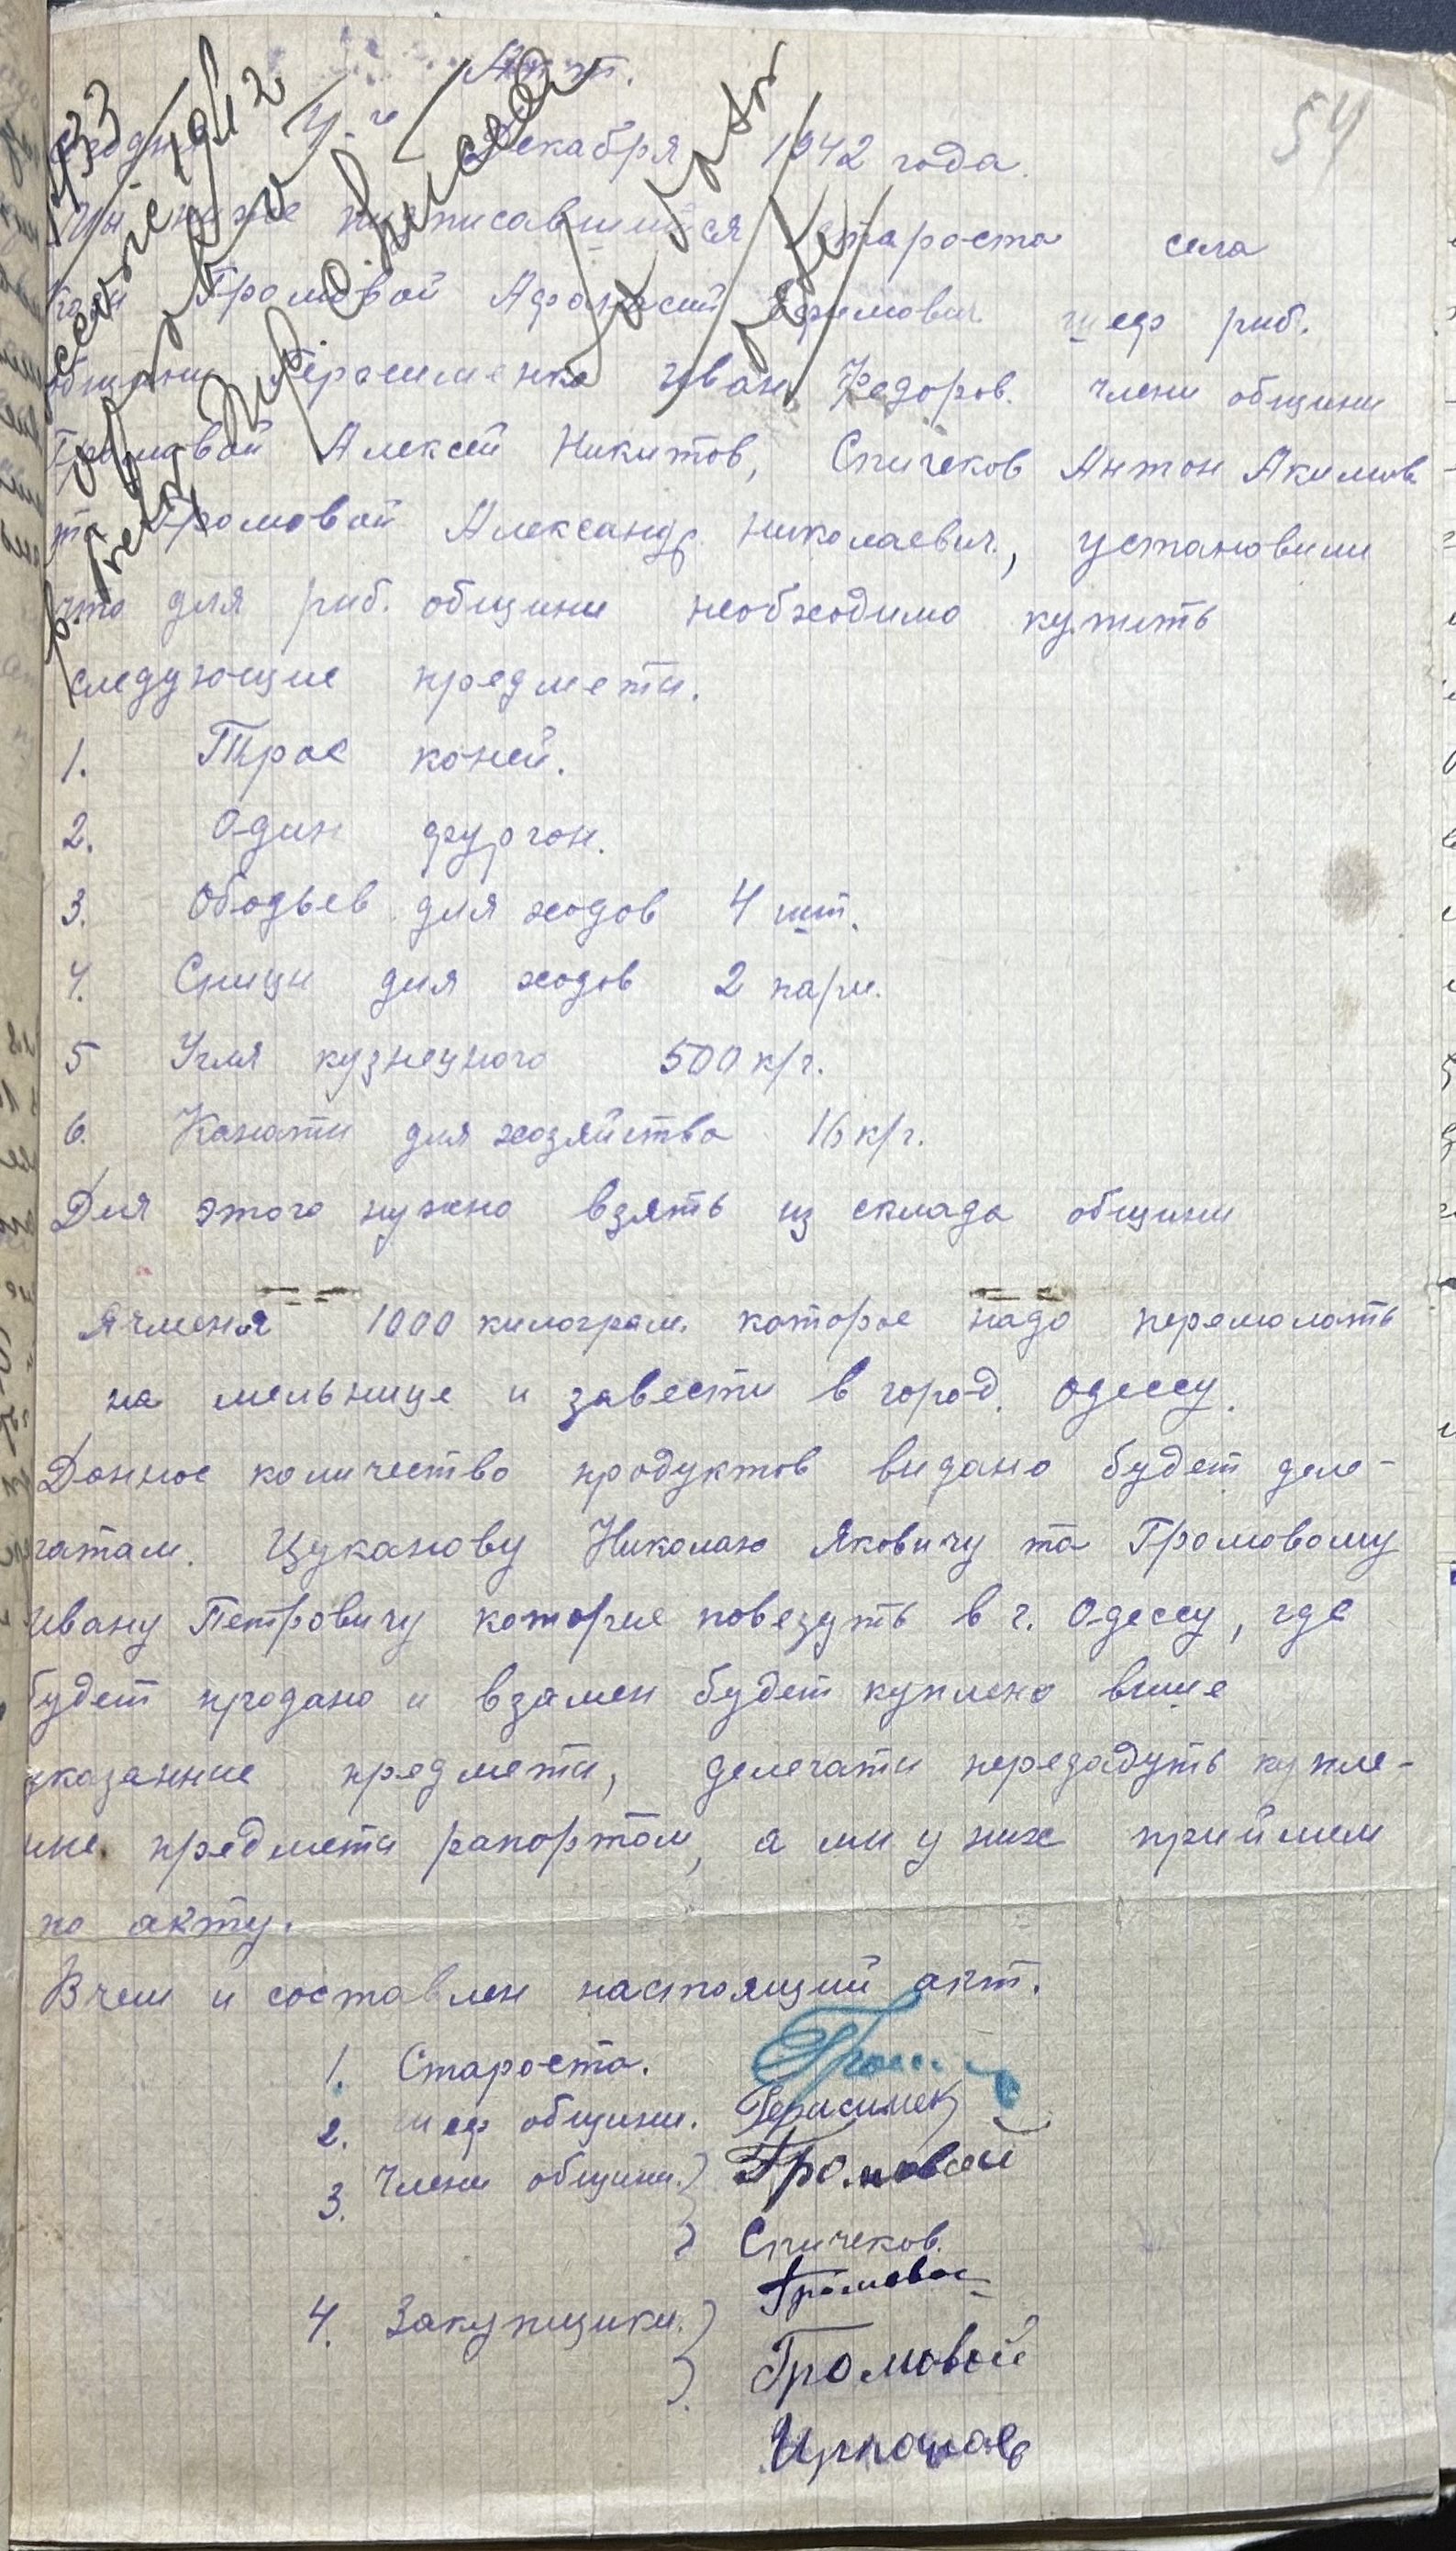 54
Акт.
Сегодня 4-го Декабря 1942 года.
Мы ниже подписавшиийся староста села
Громовой Афанасий Ефимович шеф риб.
общини Герасименко Иван Федоров. члени общини
Громовой Алексей Никитов, Спичеков Антон Акимов
та Громовой Александр Николаевич, установили
что для риб. общини необходимо купить
следующие предмети.
1. Трое коней.
2. Один фургон.
3. Ободьев для ходов 4 шт.
4. Спици для ходов 2 пари.
5 Угля кузнецного 500 к/г.
6. Канати для хозяйства 16 к/г.
Для этого нужно взять из склада общини
Ячменя 1000 килограм. которое надо перемолоть
на мельнице и завести в город. Одессу.
Данное количество продуктов видано будет деле-
гатам. Цуканову Николаю Яковичу та Громовому
Ивану Петровичу которие повезуть в г. Одессу, где
будет продано и взамен будет куплено више
указанние предмети, делегати передадуть купле-
ние предмети рапортом, а ми у них приймем
по акту.
В чем и составлен настоящий акт.
1. Староста. Гром
2. Шеф общини. Герасименко
3. Члени общини. Громовой
Спичеков.
Громовой
4. Закупщики. Громовой
Цуканов